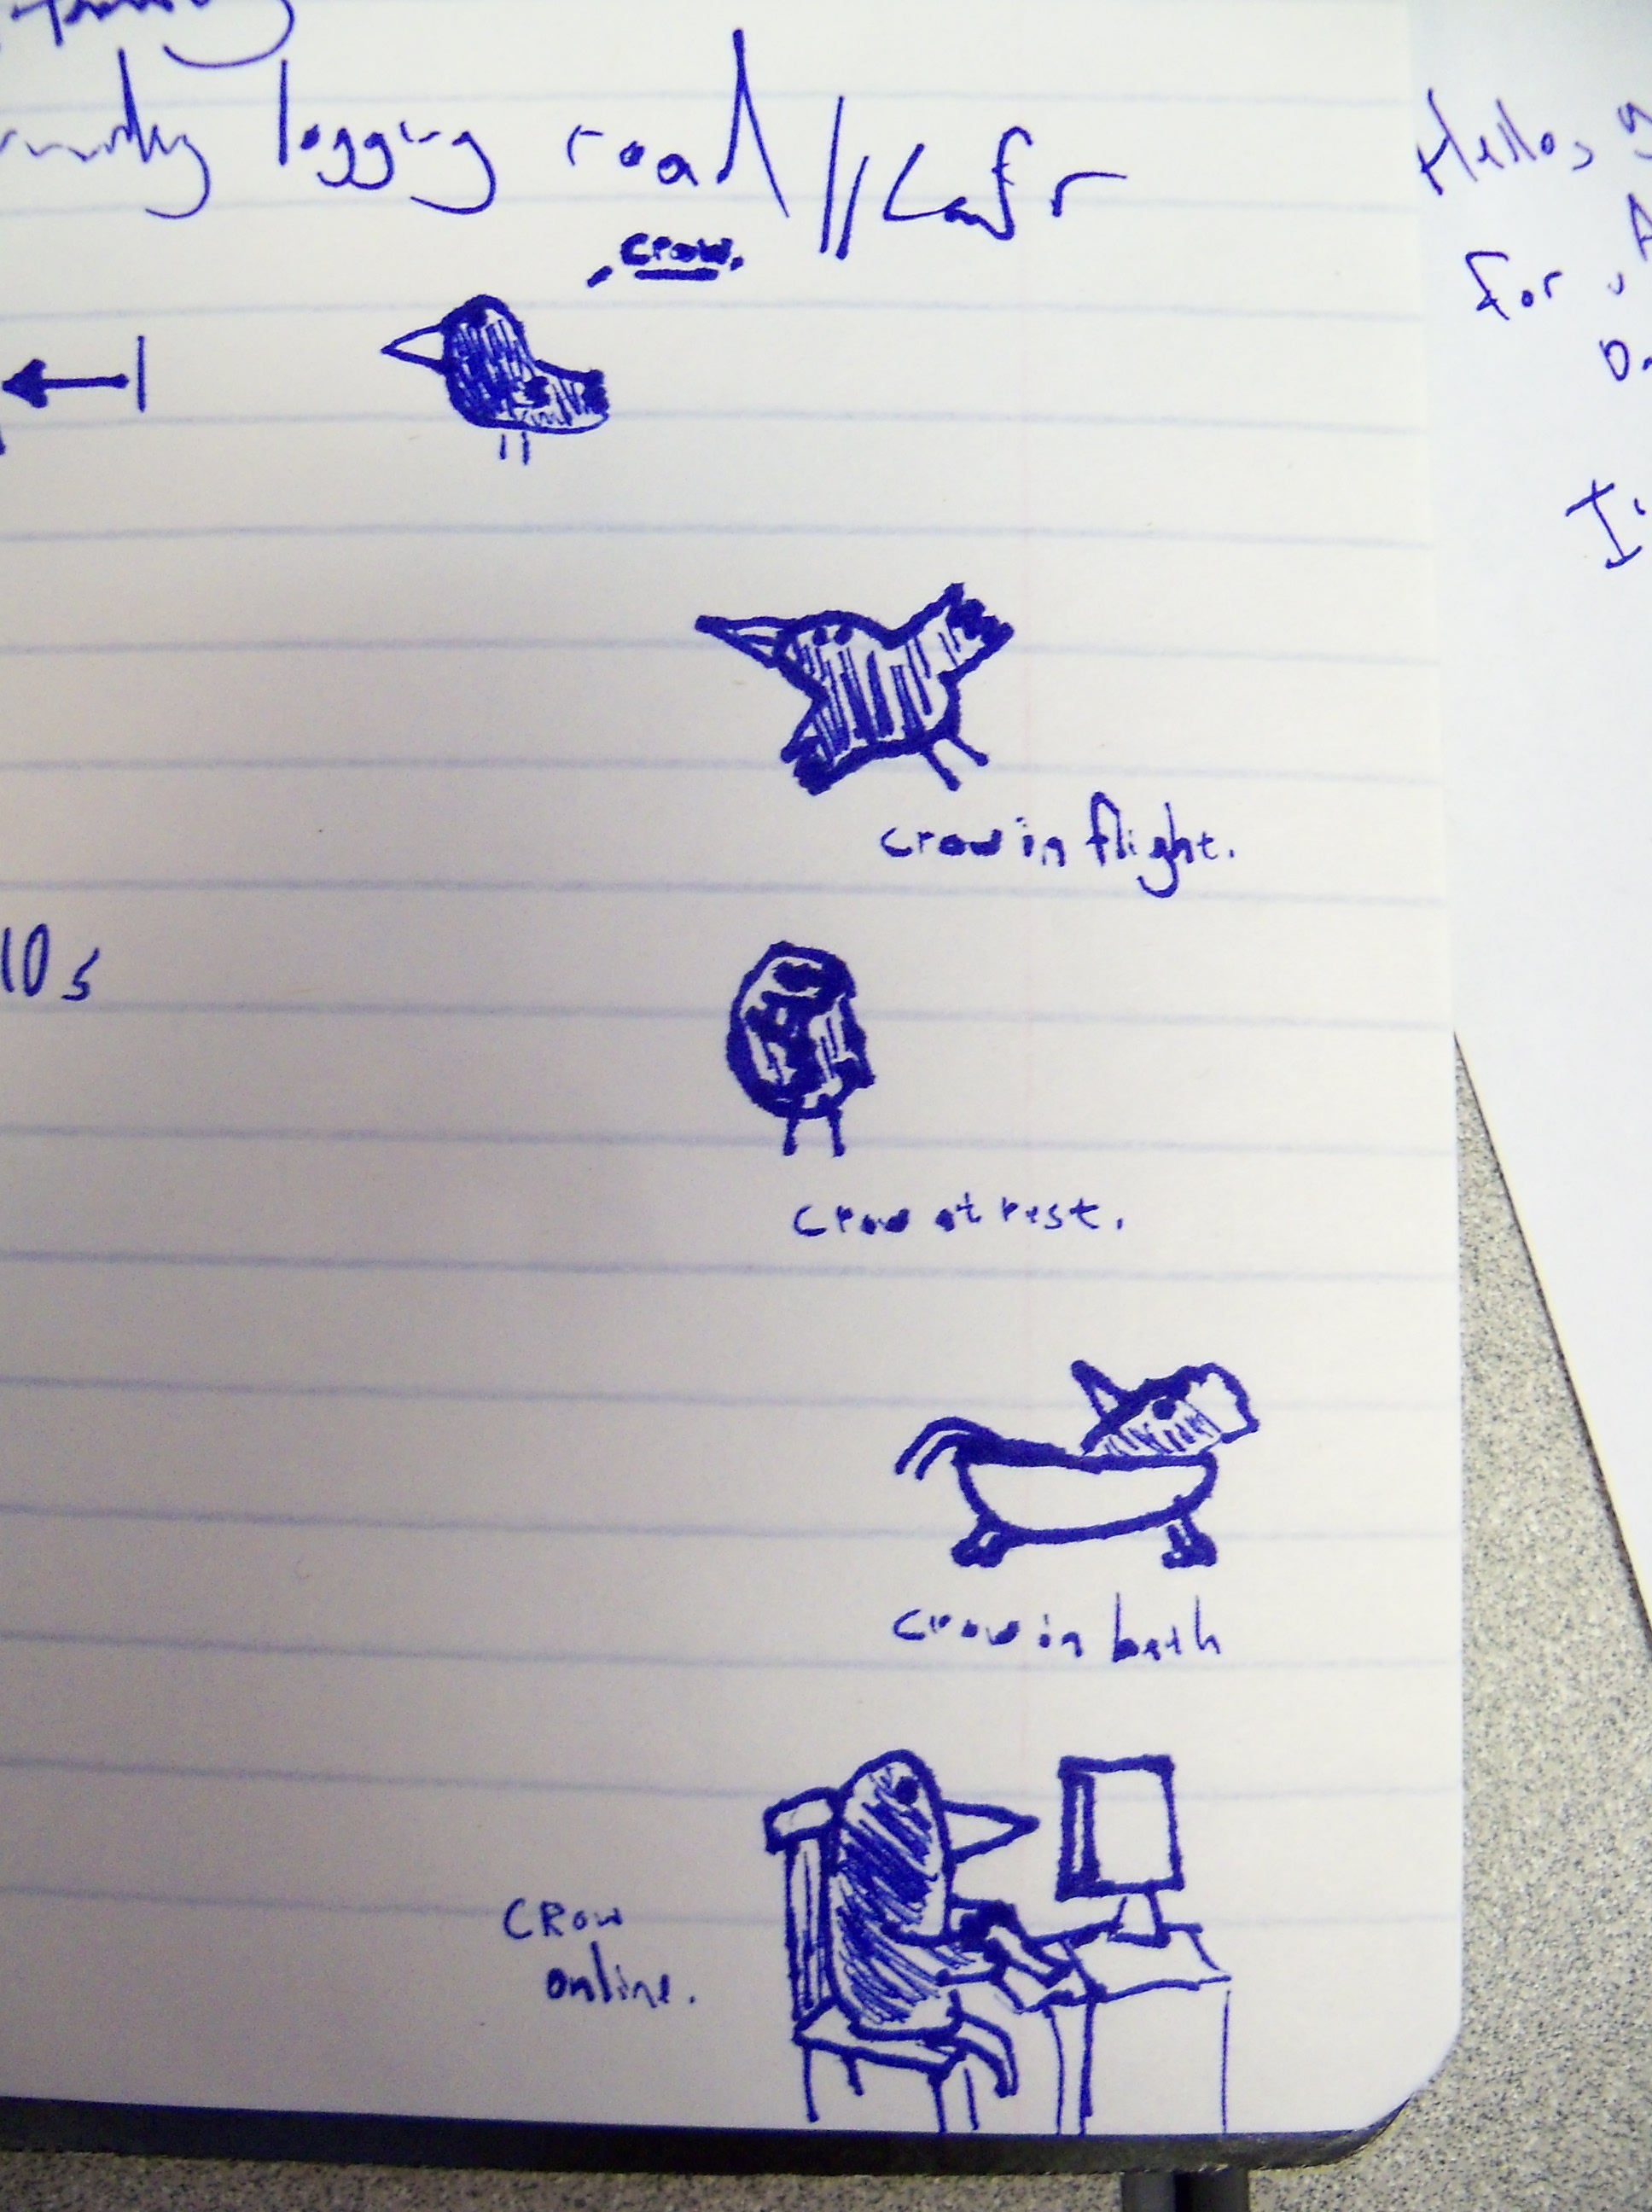 logging road //
crow.
crow in flight.
10s
crow at rest.
crow in bath
CROW
online.
Hello,
for
I'